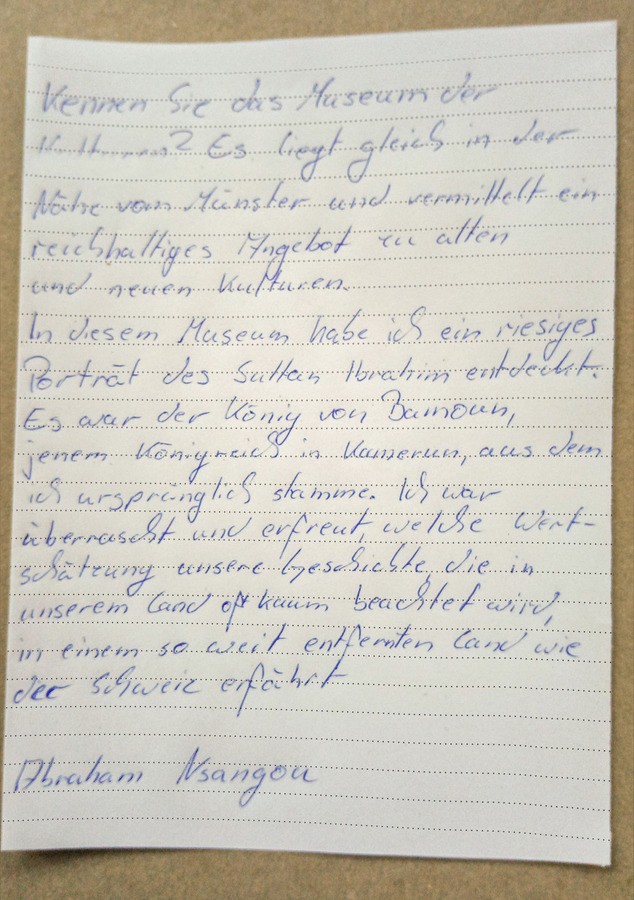 Kennen Sie das Museum der
? Es liegt gleich in der
Nähe vom Münster und vermittelt ein
reichhaltiges Angebot zu alten
und neuen Kulturen.
In diesem Museum habe ich ein riesiges
Porträt des Sultan Ibrahim entdeckt.
Es war der König von Bamoun,
jenem Königreich in Kamerun, aus dem
ich ursprünglich stamme. Ich war
überrascht und erfreut, welche Wert-
schätzung unsere Geschichte, die in
unserem Land oft kaum beachtet wird,
in einem so weit entfernten Land wie
der Schweiz erfährt
Abraham Nsangou